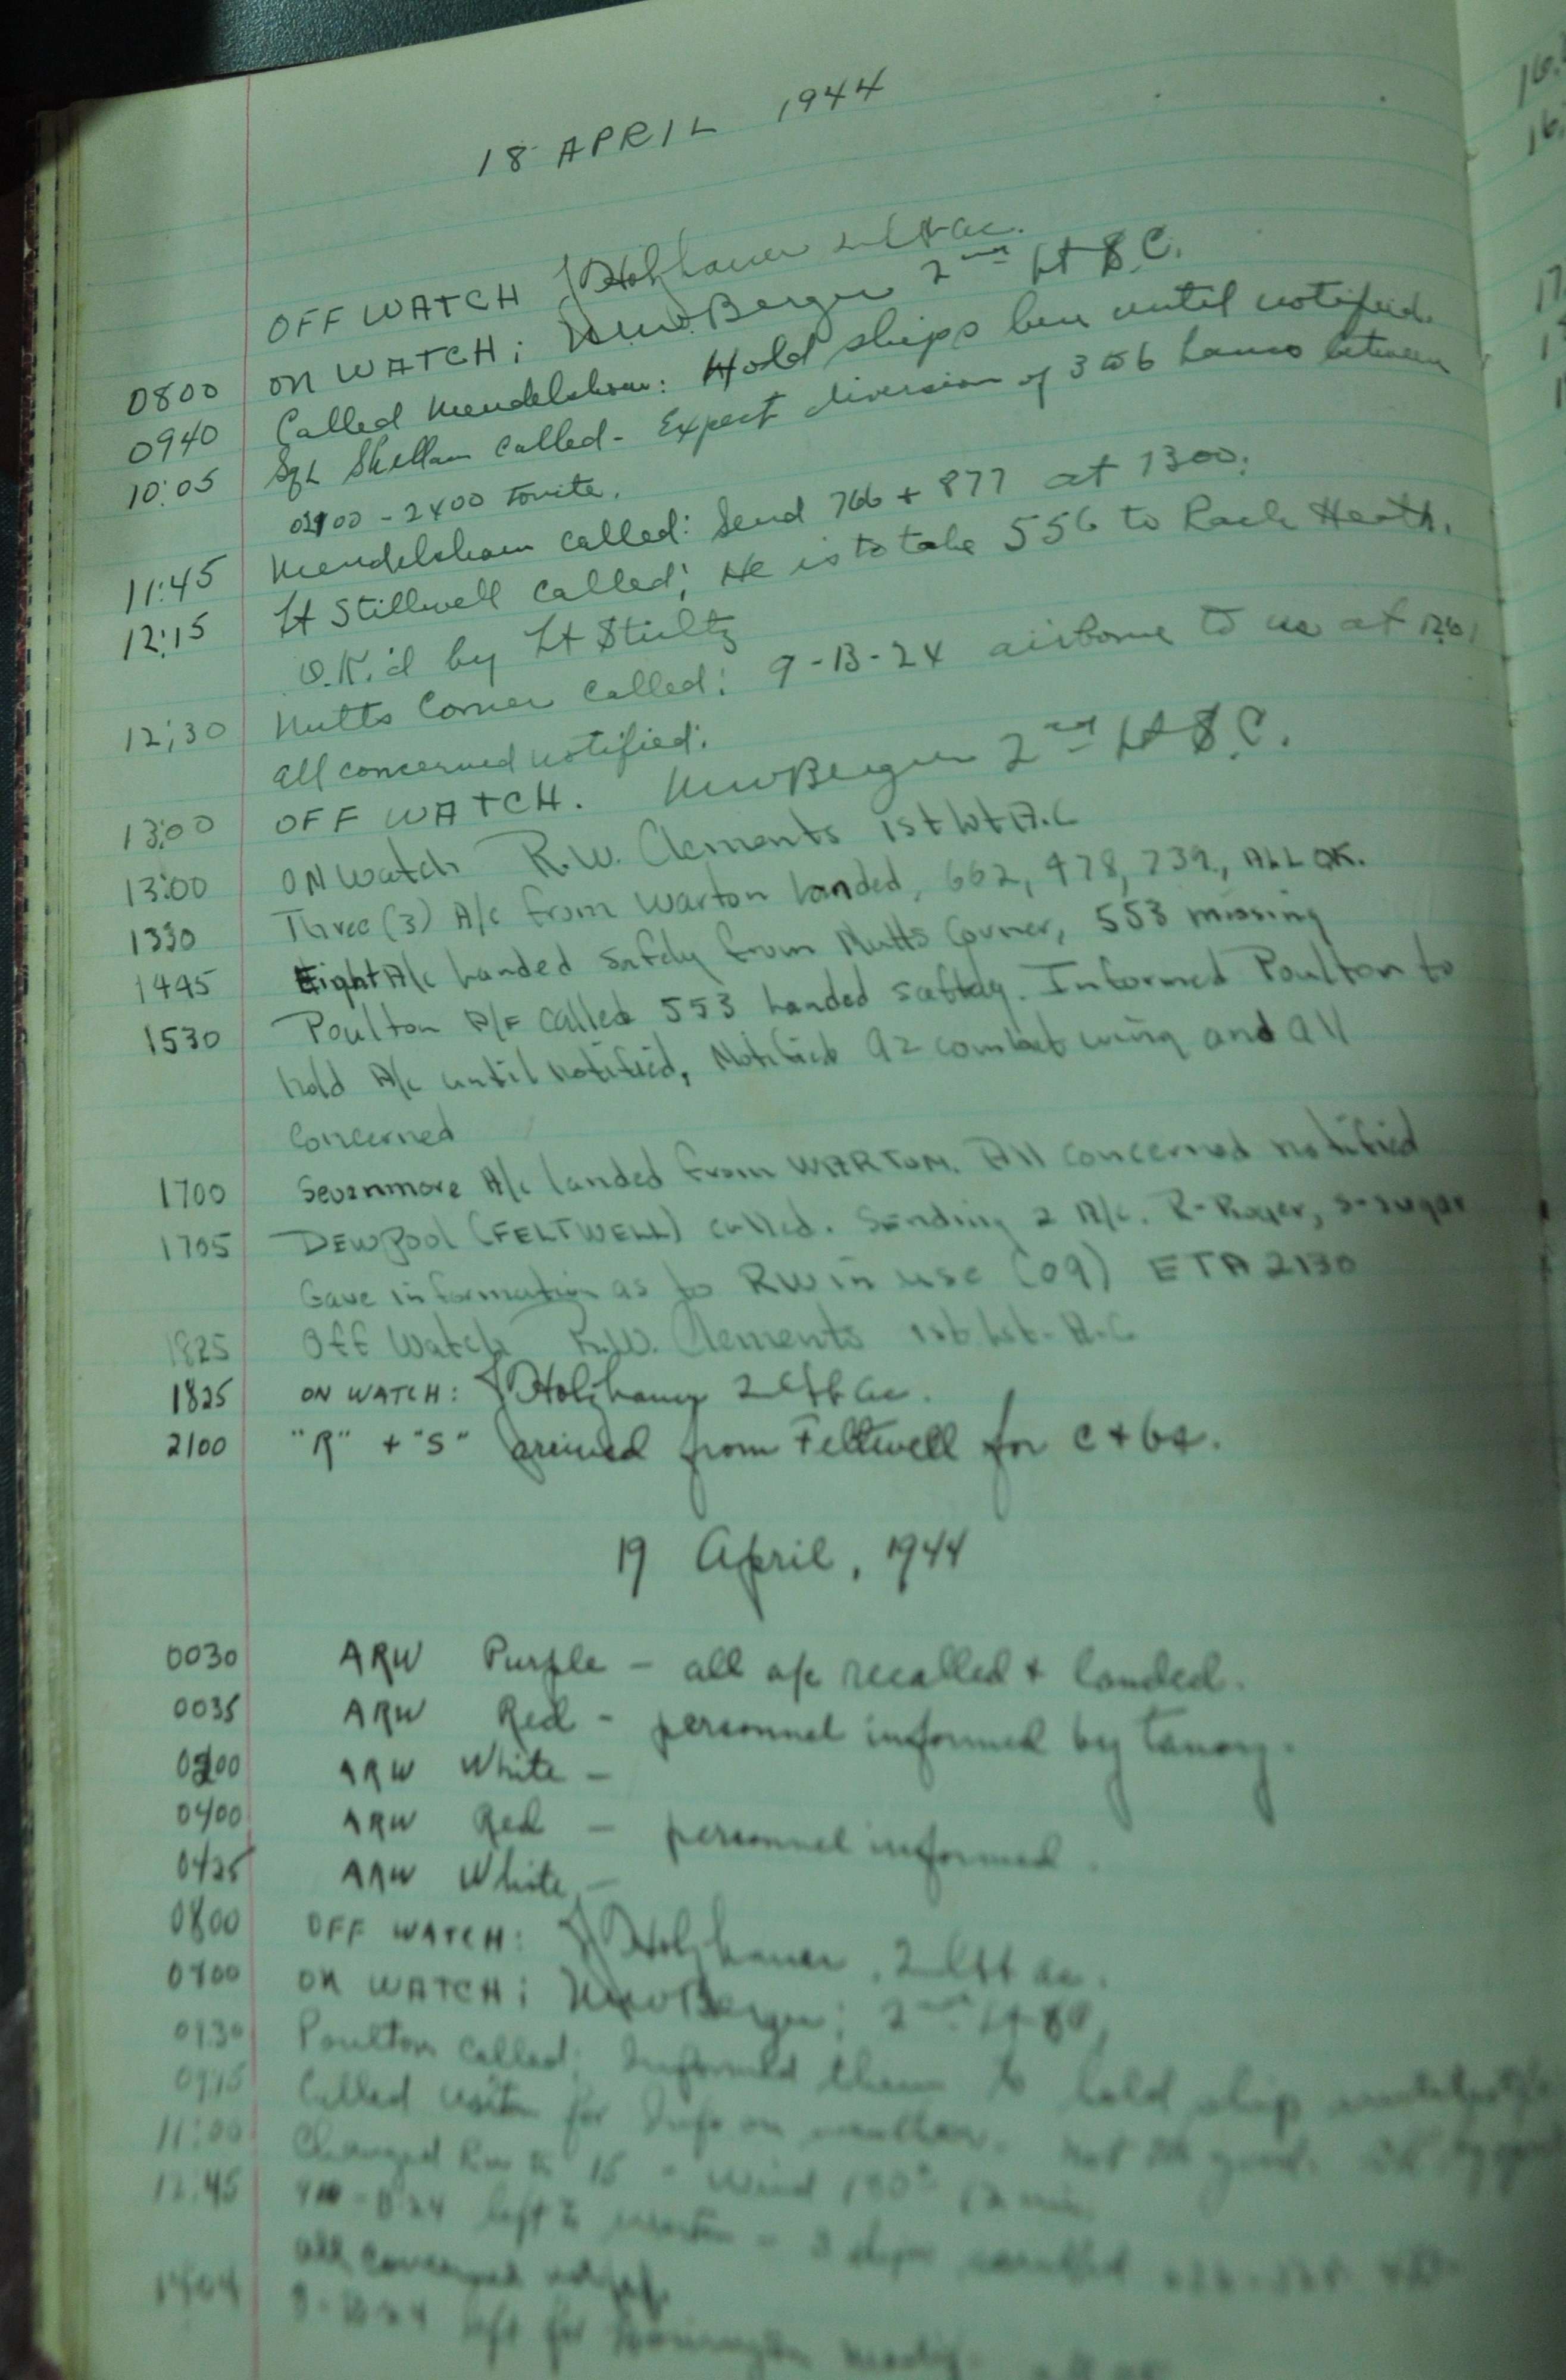 18 APRIL 1944
OFF WATCH J Holzhauer 2nd Lt ac.
0800 ON WATCH; NewBerger 2nd Lt S.C.
0940 Called Mendelsham: Hold ships here until notified.
10:05 Sgt Shellam called - Expect diversion of 3 to 6 Lancs between
- 2400 tonite.
11:45 Mendelsham called: Send 766 + 877 at 1300.
12:15 Lt Stillwell called; He is to take 556 to Rack Heath.
O.K.'d by Lt Stultz
12:30 Nutts Corner called: 9-B-24 airborne to us at
all concerned notified.
13:00 OFF WATCH. NewBerger 2nd Lt S.C.
13:00 ON watch R.W. Clements 1st Lt A.C
1330 Three (3) A/c from Warton landed, 662, 478, 739, ALL OK.
1445 Eight A/c landed safely from Nutts Corner, 553 missing
1530 Poulton A/F called 553 landed saftely. Informed Poulton to
hold A/c until notified, Notified 92 combat wing and all
concerned
1700 Seven more A/c landed from WARTON. All concerned notified
1705 DEWPool (FELTWELL) called. Sending 2 A/c. R-Roger, S-sugar
Gave information as to RW in use (09) ETA 2130
1825 Off Watch R.W. Clements 1st Lt. A.C
1825 ON WATCH: J Holzhauer 2nd Lt ac.
2100 "R" + "S" arrived from Feltwell for
19 April, 1944
0030 ARW Purple - all a/c recalled + landed.
0035 ARW Red - personnel informed by tannoy.
ARW White -
0400 ARW Red - personnel informed.
0425 ARW White -
0800 OFF WATCH: J Holzhauer, 2nd Lt ac.
0800 ON WATCH; NewBerger; 2nd Lt SC
0930 Poulton called; Informed them to hold ship
Called for Info on weather. not
11:00 Changed Rw to 15 - Wind 180°
12:45 left to Warton - 3 ships
all concerned
left for